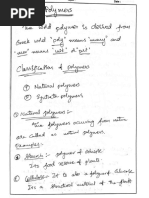 Polymers
Date :
The word polymer is derived from
Greek word "poly" means "many" and
"mer" means "unit" or "part".
Classification of polymers
① Natural polymers
② Synthetic polymers
① Natural polymers :-
The polymers occuring from nature
are called as natural polymers.
Examples:-
Starch :- polymer of glucose
It is a food reserve of plants.
Cellulose :- It is also a polymer of glucose.
It is a structural material of the plants